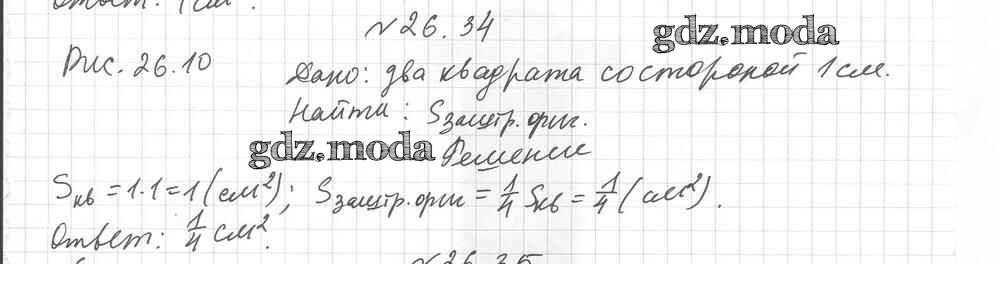 Ответ: 1 см².
№26.34
gdz.moda
Рис. 26.10
Дано: два квадрата со стороной 1 см.
Найти: Sзаштр.фиг.
gdz.moda
Решение
Sкв = 1·1 = 1 (см²); Sзаштр.фиг = 1/4 Sкв = 1/4 (см²).
Ответ: 1/4 см².
№26.35